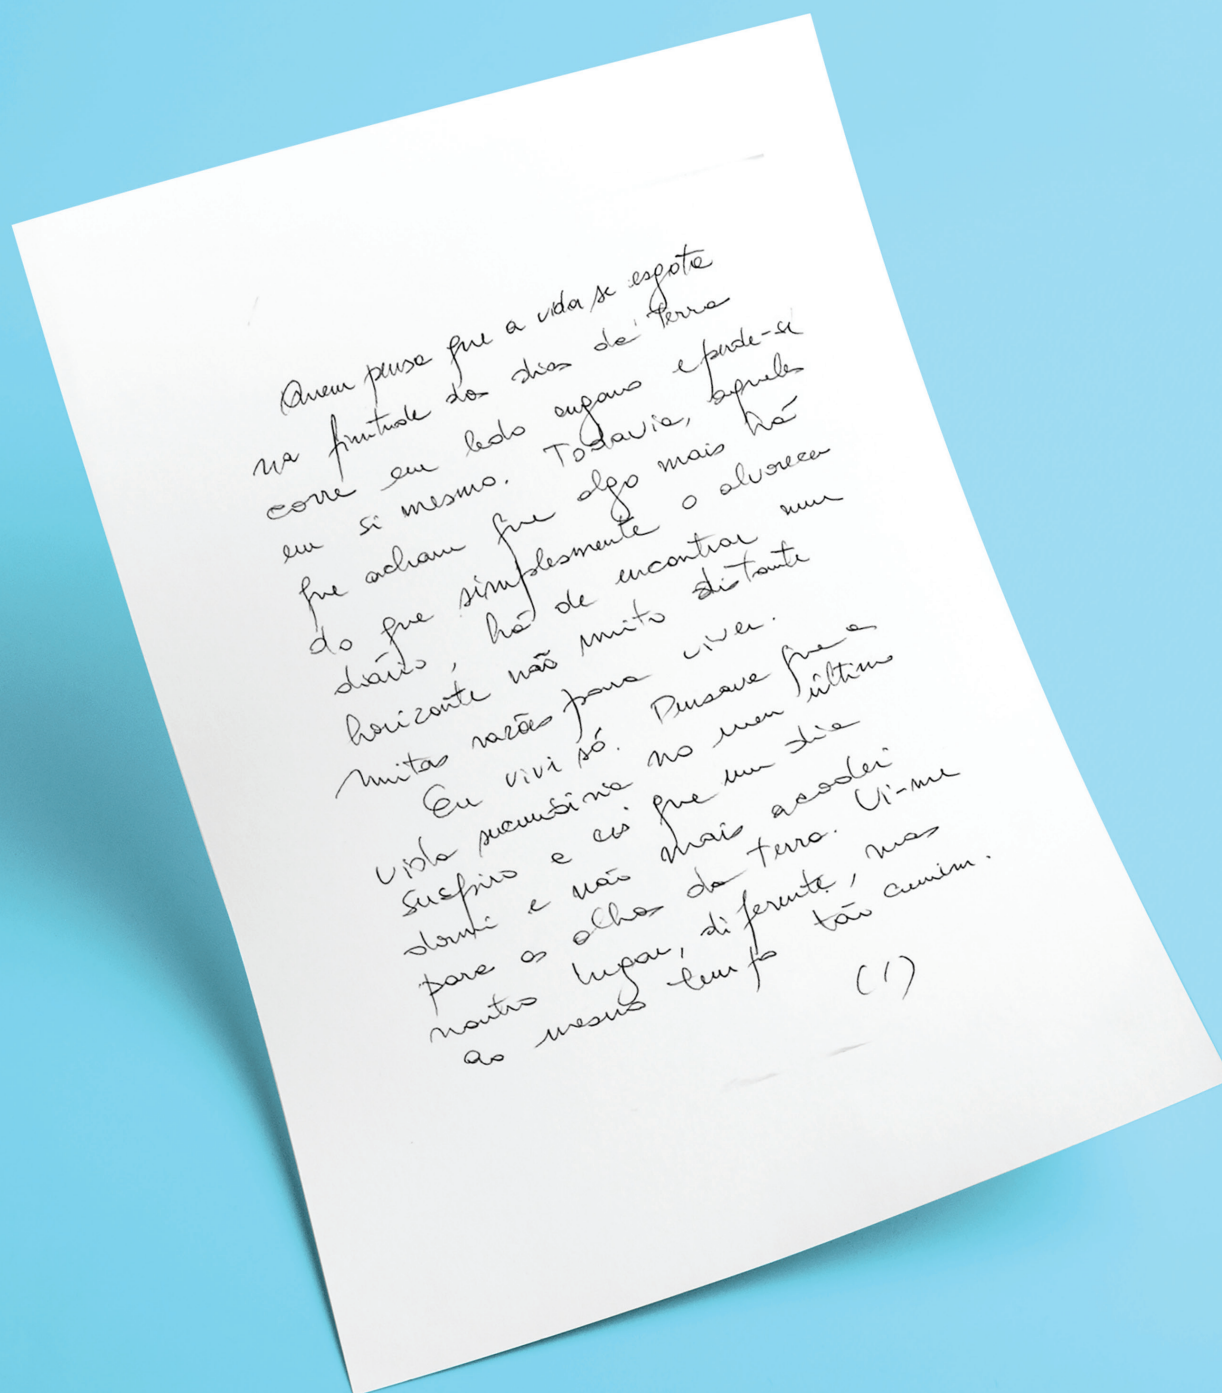 Quem pensa que a vida se esgota
na finitude dos dias da Terra
corre em ledo engano e perde-se
em si mesmo. Todavia, aqueles
que acham que algo mais há
do que simplesmente o alvorecer
diário, há de encontrar num
horizonte não muito distante
muitas razões para viver.
Eu vivi só. Pensava que a
vida sucumbiria no meu último
suspiro e eis que um dia
dormi e não mais acordei
para os olhos da terra. Vi-me
noutro lugar, diferente, mas
ao mesmo tempo tão comum.
(1)